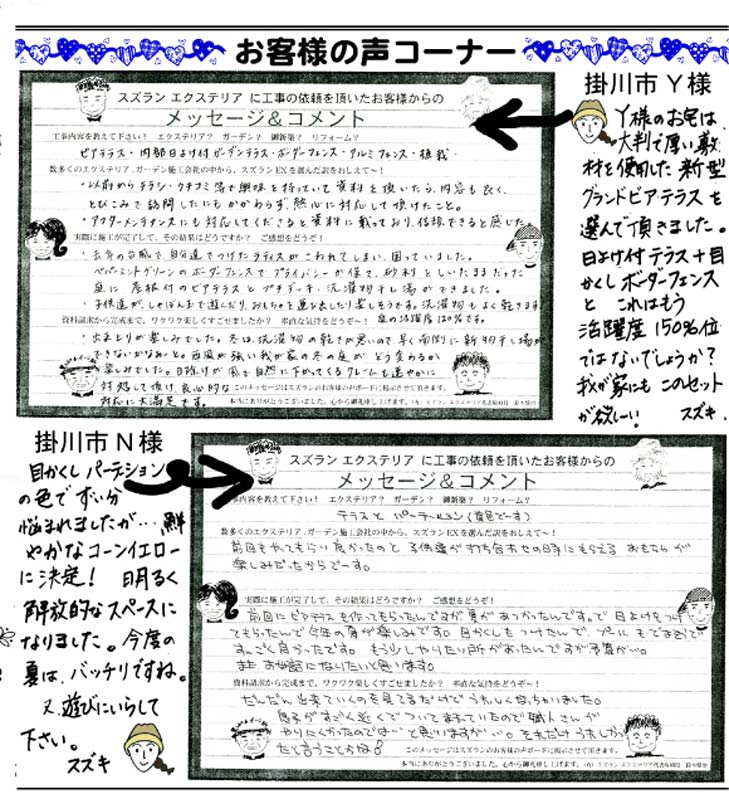 お客様の声コーナー
掛川市 Y 様
Y様のお宅は
大判で厚い敷
材を使用した新型
グランドピアテラスを
選んで頂きました。
日よけ付テラス+目
かくしボーダーフェンス
と これはもう
活躍度150%位
ではないでしょうか?
我が家にもこのセット
が欲しーい。 スズキ.
スズラン エクステリア に工事の依頼を頂いたお客様からの
メッセージ&コメント
工事内容を教えて下さい! エクステリア? ガーデン? 御新築? リフォーム?
ピアテラス・内部日よけ付ガーデンテラス・ボーダーフェンス・アルミフェンス・植栽
数多くのエクステリア.ガーデン施工会社の中から、スズランEXを選んだ訳をおしえて〜!
・以前からチラシ・クチコミ等で興味を持っていて資料を頂いたら、内容も良く、
とびこみで訪問したにもかかわらず、熱心に対応して頂けたこと。
・アフターメンテナンスにも対応してくださると資料に載っており、信頼できると感じた。
実際に施工が完了して、その結果はどうですか? ご感想をどうぞ!
・去年の台風で、自分達でつけたラティスがこわれてしまい、困っていました。
ペパーミントグリーンのボーダーフェンスでプライバシーが保て、砂利としいたままだった
庭に屋根付のピアテラスとプチデッキ、洗濯物干し場ができました。
子供達が、しゃぼん玉で遊んだり、おもちゃを運び出したり楽しそうです。洗濯物もよく乾きます
資料請求から完成まで、ワクワク楽しくすごせましたか? 率直な気持をどうぞ〜! 庭の活躍度120%です。
・出来上りが楽しみでした。冬は、洗濯物の乾きが悪いので、早く南側に新物干し場が
できないかなぁ〜と。西風が強い我が家の冬の庭が どう変わるか
楽しみでした。日除けが風で自然に下がってくるクレームも速やかに
対処して頂け、良心的な このメッセージはスズランのお客様の声ボードに掲示させて頂きます。
対応に大満足です。 本当にありがとうございました。心から御礼申し上げます。(有)スズラン エクステリア代表取締役 鈴木
掛川市 N 様
目かくしパーテション
の色でずい分
悩まれましたが… 鮮
やかなコーンイエロー
に決定! 明るく
解放的なスペースに
なりました。今度の
夏は、バッチリですね。
又、遊びにいらして
下さい。
スズキ
スズラン エクステリア に工事の依頼を頂いたお客様からの
メッセージ&コメント
工事内容を教えて下さい! エクステリア? ガーデン? 御新築? リフォーム?
テラスと パーテーション(黄色でーす)
数多くのエクステリア.ガーデン施工会社の中から、スズランEXを選んだ訳をおしえて〜!
前回もやってもらい良かったのと 子供達が打ち合わせの日時にもらえる おもちゃが
楽しみだったからでーす。
実際に施工が完了して、その結果はどうですか? ご感想をどうぞ!
前回にピアテラスを作ってもらったんですが夏があつかったんです。で 日よけをつけ
てもらったんで今年の夏が楽しみです。目かくしもつけたんで、プールもできそうで
すんごく良かったです。もう少しやりたい所があったんですが予算が…。
また お世話になりたいと思います。
資料請求から完成まで、ワクワク楽しくすごせましたか? 率直な気持をどうぞ〜!
だんだん出来ていくのを見てるだけでうれしくなっちゃいました。
息子がすごく近くで ついてまわっていたので職人さんが
やりにくかったのでは…と思いますが…。それだけうれしかっ
たって言うことかね!
このメッセージはスズランのお客様の声ボードに掲示させて頂きます。
本当にありがとうございました。心から御礼申し上げます。(有)スズラン エクステリア代表取締役 鈴木